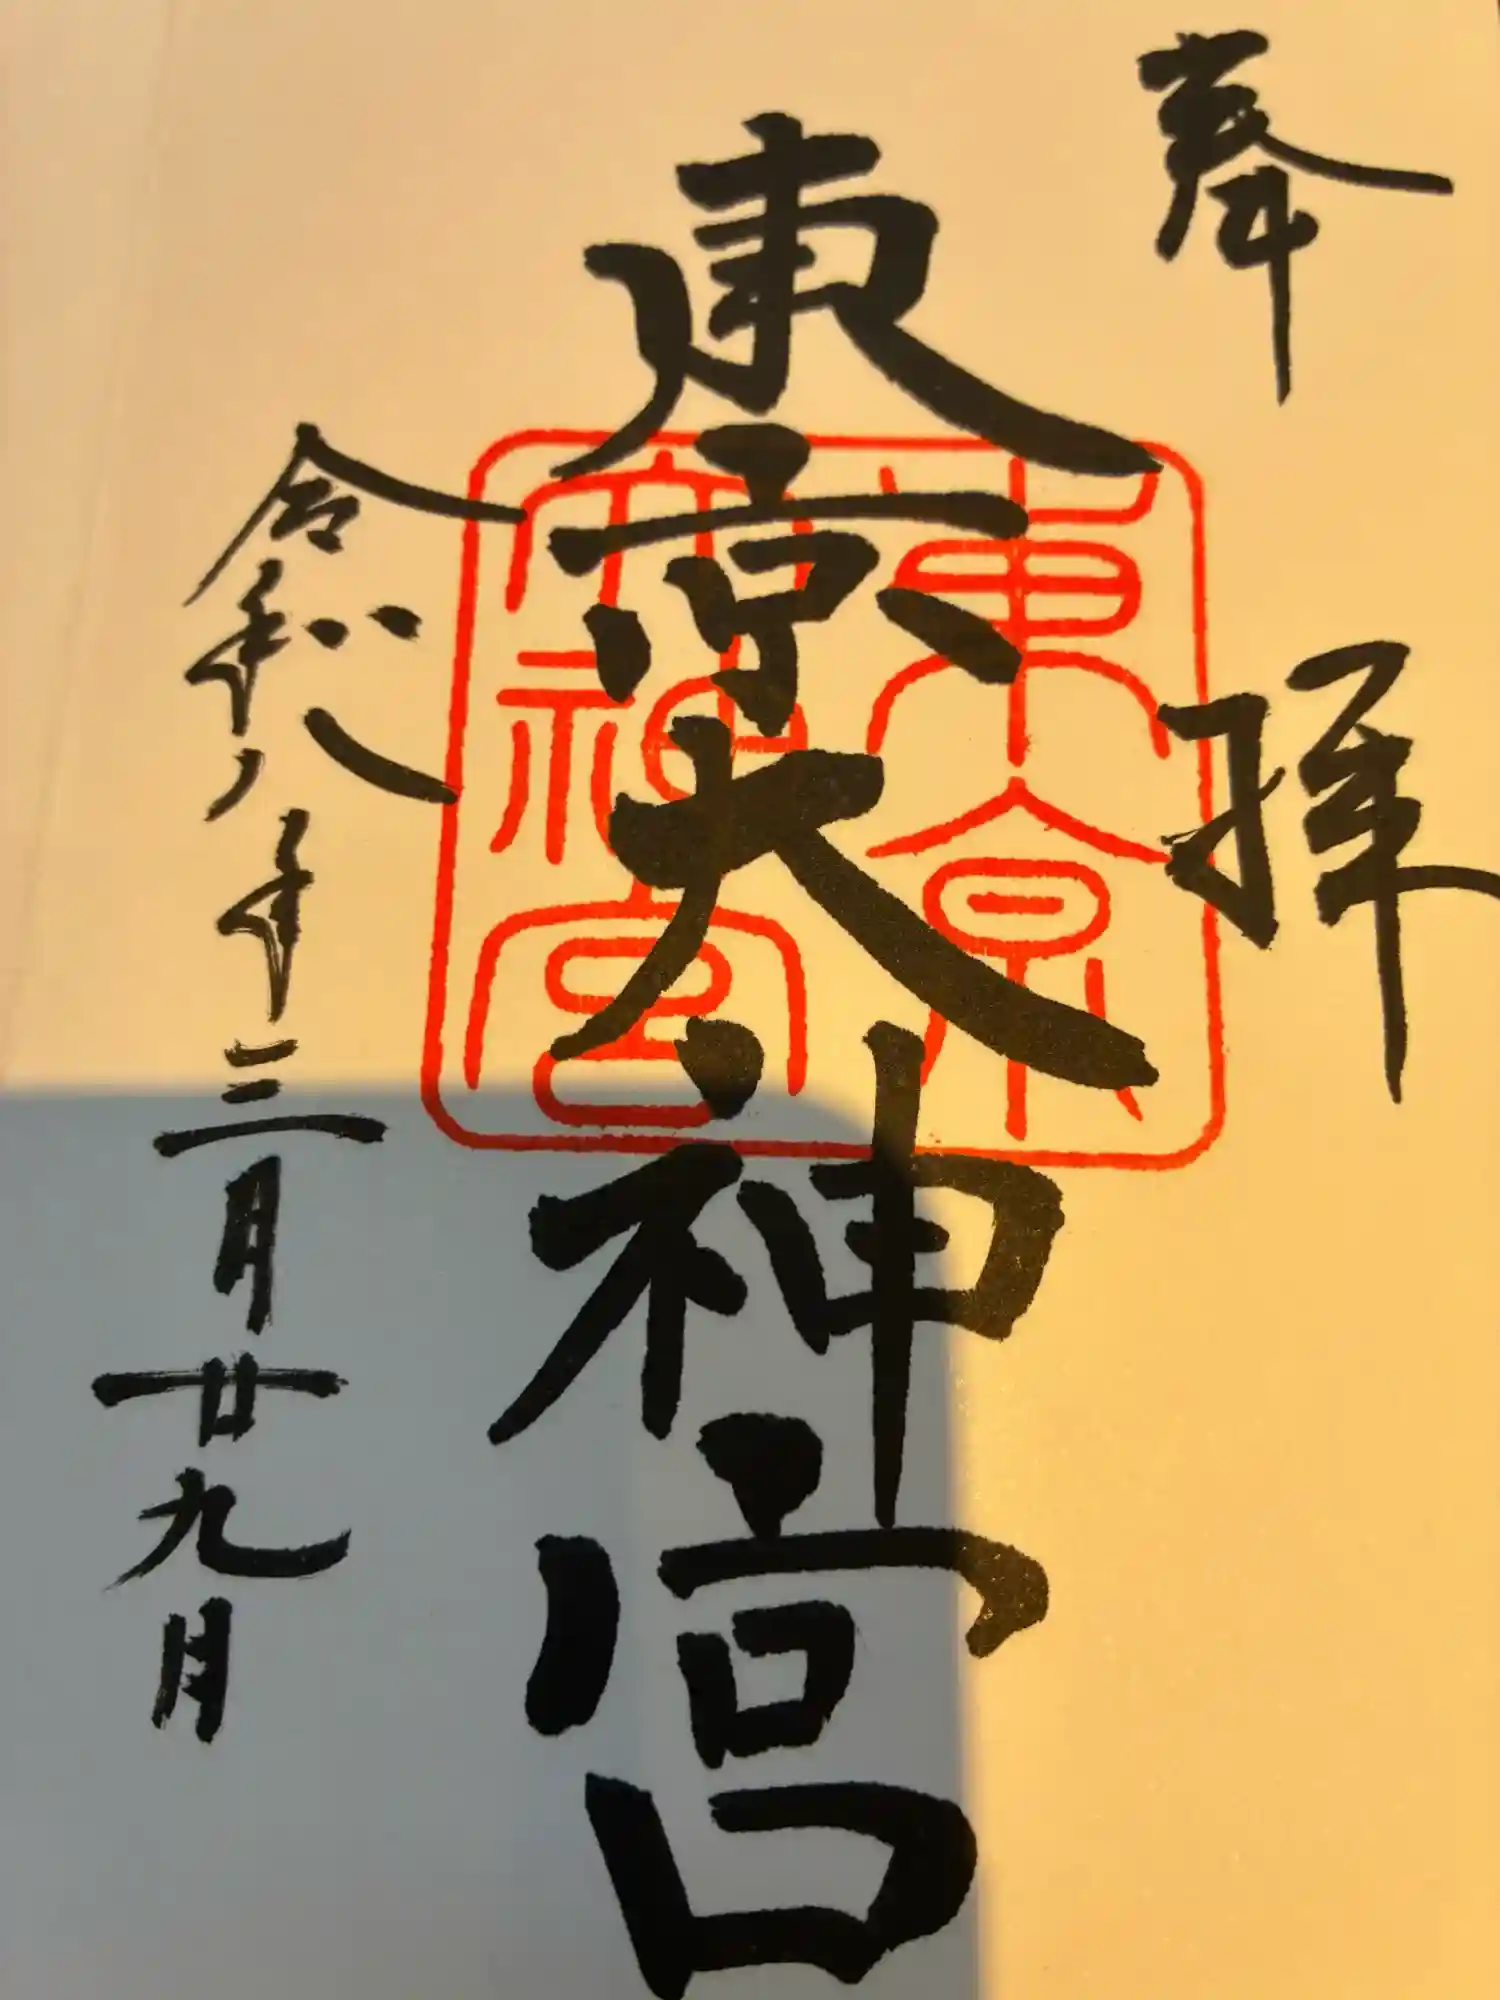 奉拝
東京大神宮
東京
大神宮
令和八年三月廿九日